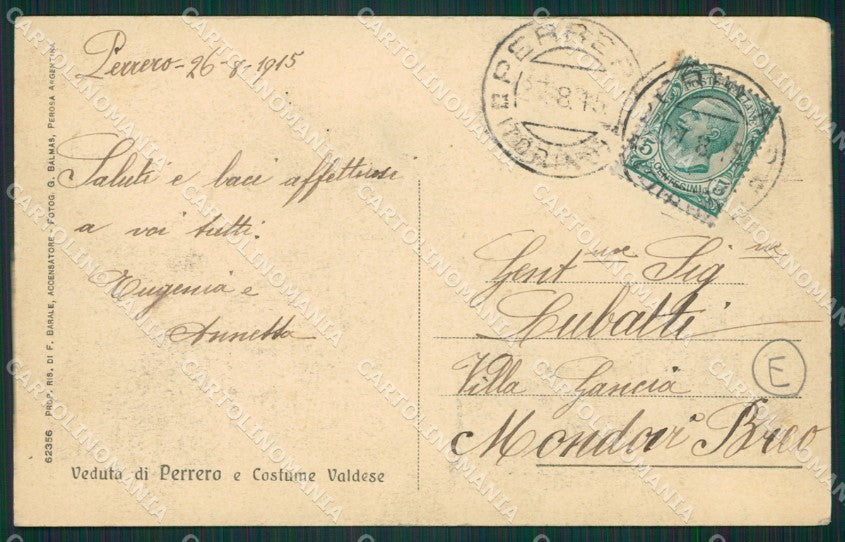 Perrero - 26-8-1915
Saluti e baci affettuosi
a voi tutti.
Eugenia e
Annetta
Veduta di Perrero e Costume Valdese
62356 PROP. RIS. DI F. BARALE, ACCENSATORE - FOTOG. G. BALMAS, PEROSA ARGENTINA
PERRERO
27.8.15
(TORINO)
5 CENTESIMI 5
Gent me Sig ne
Lubatti
Villa Gancia
Mondovì Breo
E
CARTOLINOMANIA